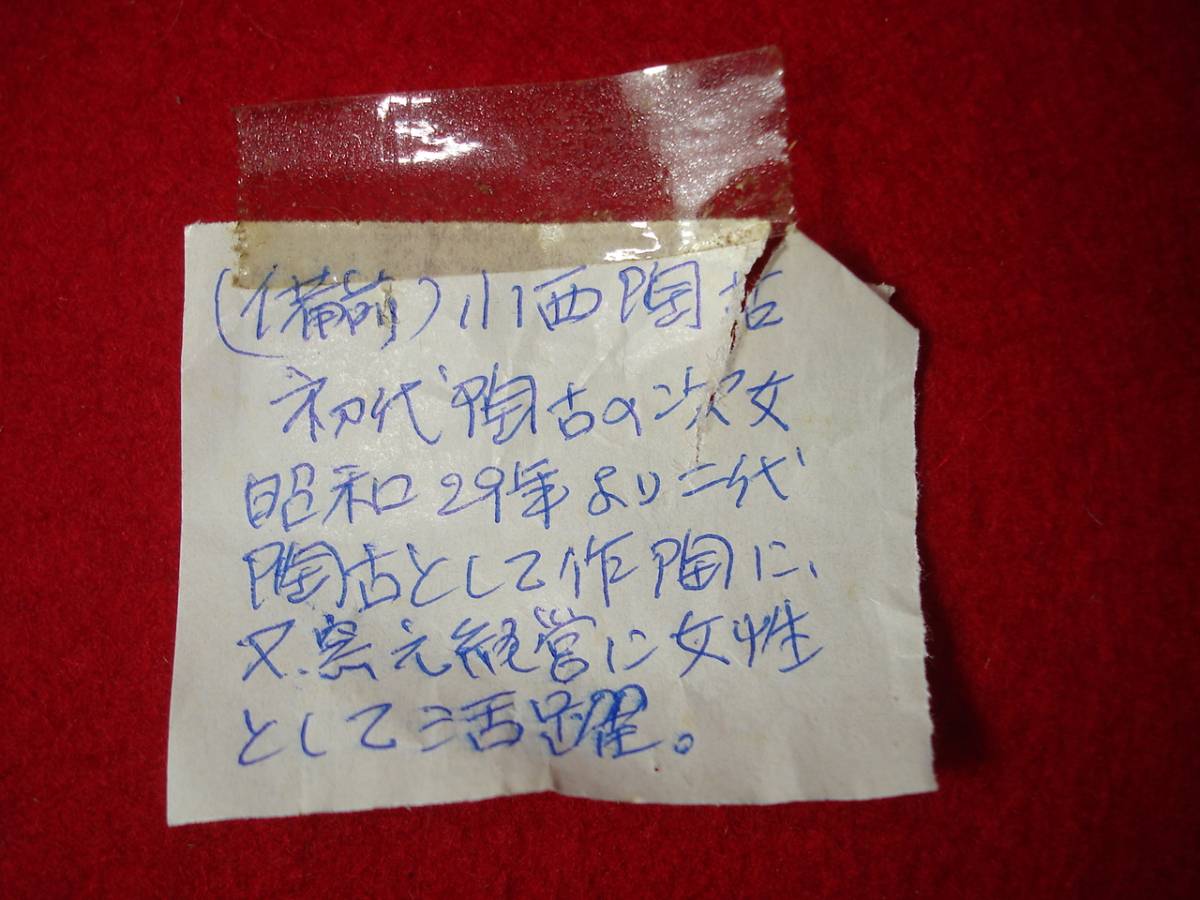 (備前)小西陶古
初代陶古の次女
昭和29年より二代
陶古として作陶に、
又窯元経営に女性
として活躍。